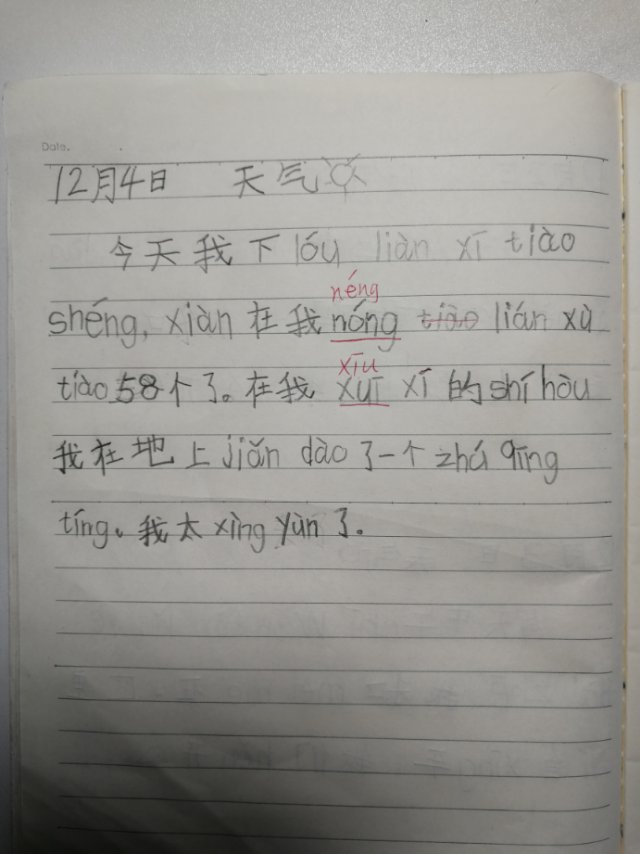 Date.
12月4日 天气
今天我下 lóu liàn xí tiào
néng
shéng, xiàn 在我 nóng tiào lián xù
xīu
tiào 58个了。在我 xuī xí 的 shí hòu
我在地上 jiǎn dào 了一个 zhú qīng
tíng、我太 xìng yùn 了.